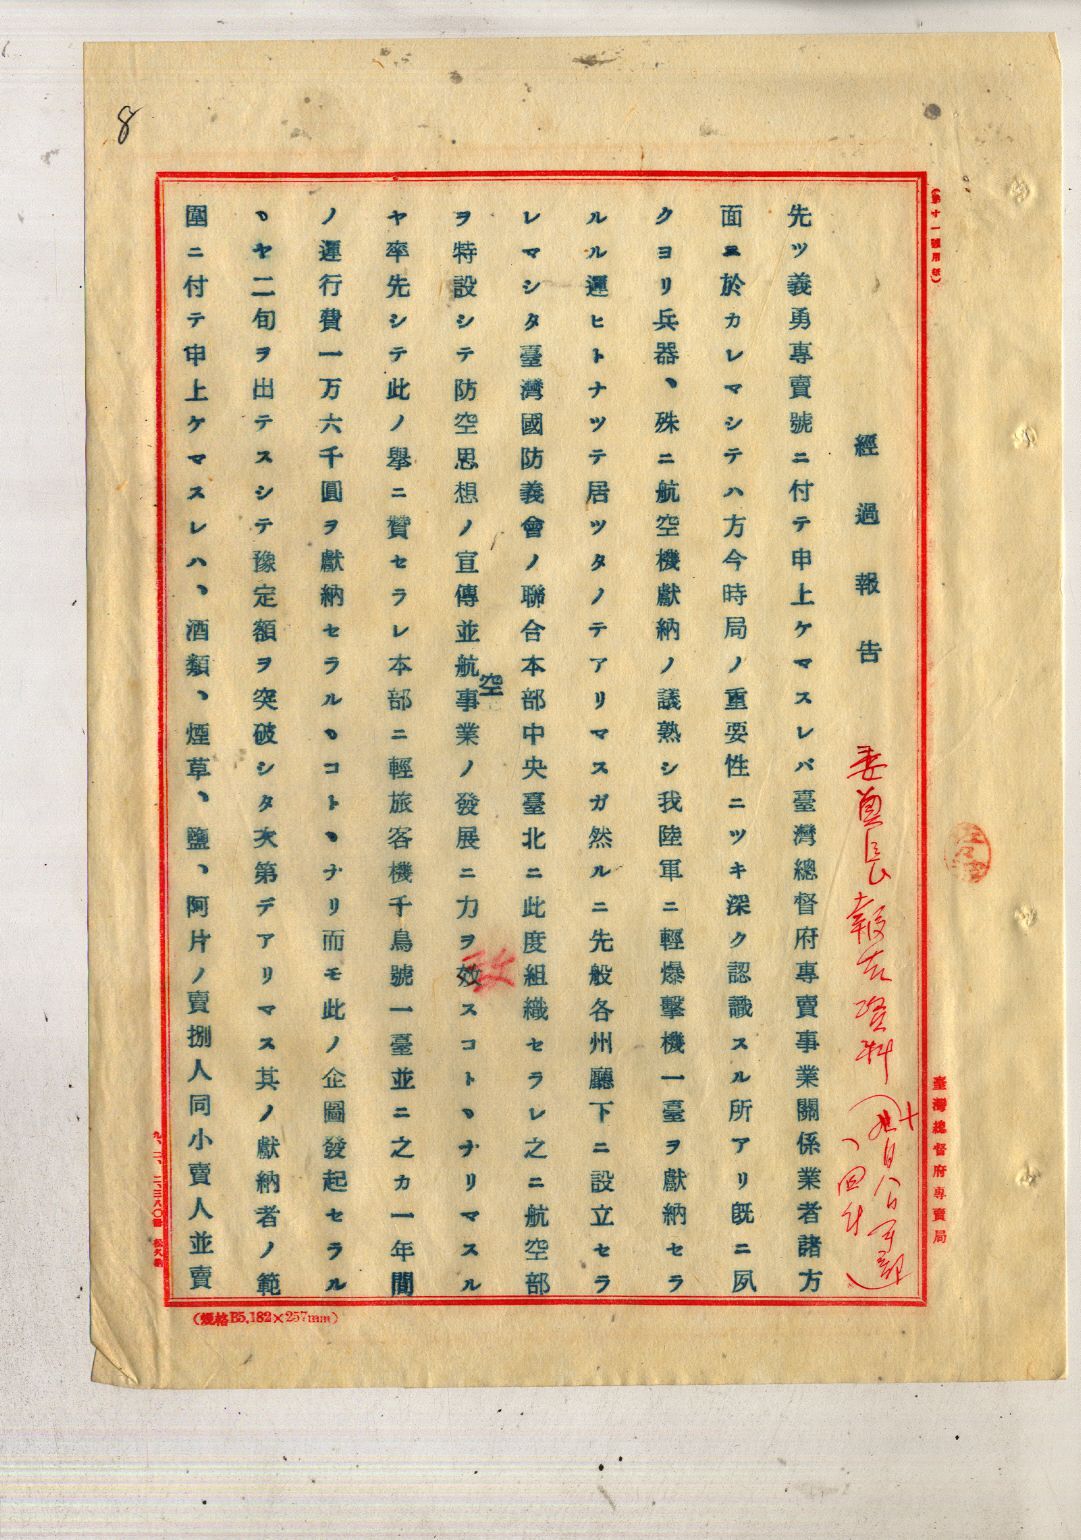 8
(第十一號用紙)
經過報告
委員長報告資料
先ツ義勇專賣號ニ付テ申上ケマスレバ臺灣總督府專賣事業關係業者諸方
面ニ於カレマシテハ方今時局ノ重要性ニツキ深ク認識スル所アリ既ニ夙
クヨリ兵器、殊ニ航空機獻納ノ議熟シ我陸軍ニ輕爆擊機一臺ヲ獻納セラ
ルル運ヒトナツテ居ツタノテアリマスガ然ルニ先般各州廳下ニ設立セラ
レマシタ臺灣國防義會ノ聯合本部中央臺北ニ此度組織セラレ之ニ航空部
ヲ特設シテ防空思想ノ宣傳並航空事業ノ發展ニ力ヲ效スコトヽナリマスル
ヤ率先シテ此ノ擧ニ贊セラレ本部ニ輕旅客機千鳥號一臺並ニ之カ一年間
ノ運行費一万六千圓ヲ獻納セラルヽコトヽナリ而モ此ノ企圖發起セラル
ヽヤ二旬ヲ出テスシテ豫定額ヲ突破シタ次第デアリマス其ノ獻納者ノ範
圍ニ付テ申上ケマスレハ、酒類、煙草、鹽、阿片ノ賣捌人同小賣人並賣
臺灣總督府專賣局
(規格B5,182×257mm)